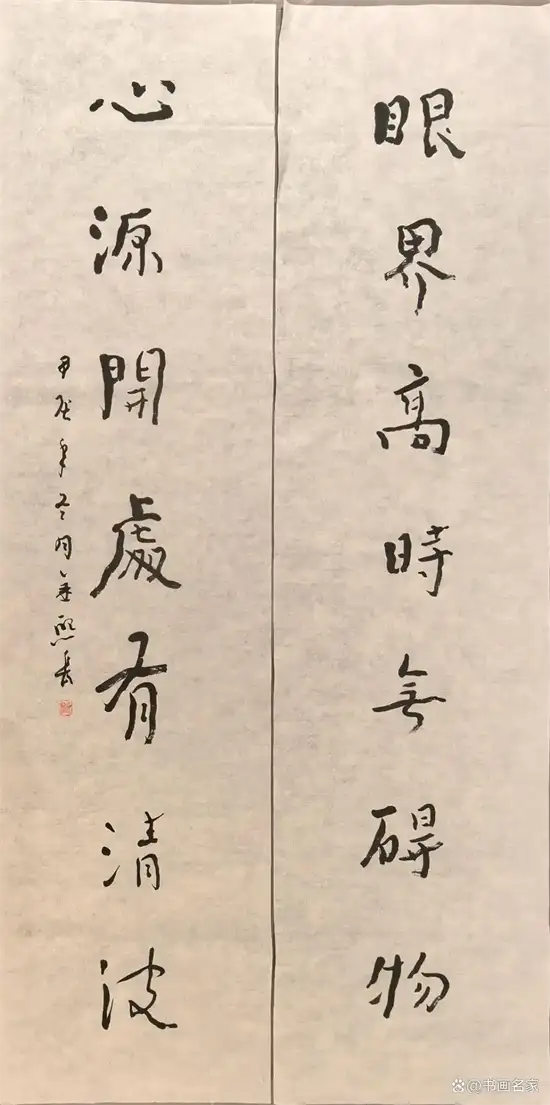 眼界高時無碍物
心源開處有清波
甲辰年冬月金熙長
@书画名家